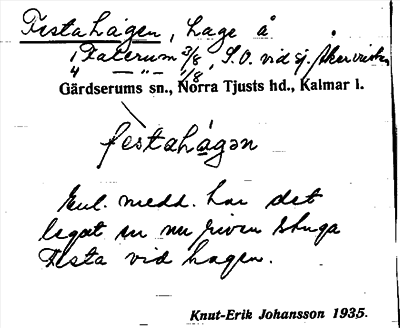 Festahagen, hage å
1 Falerum 3/8, S.O. vid sj. Åkervristen
4 — " — 1/8,
Gärdserums sn., Norra Tjusts hd., Kalmar l.
fèstahágən
Enl. medd. har det
legat en nu riven stuga
Festa vid hagen.
Knut-Erik Johansson 1935.